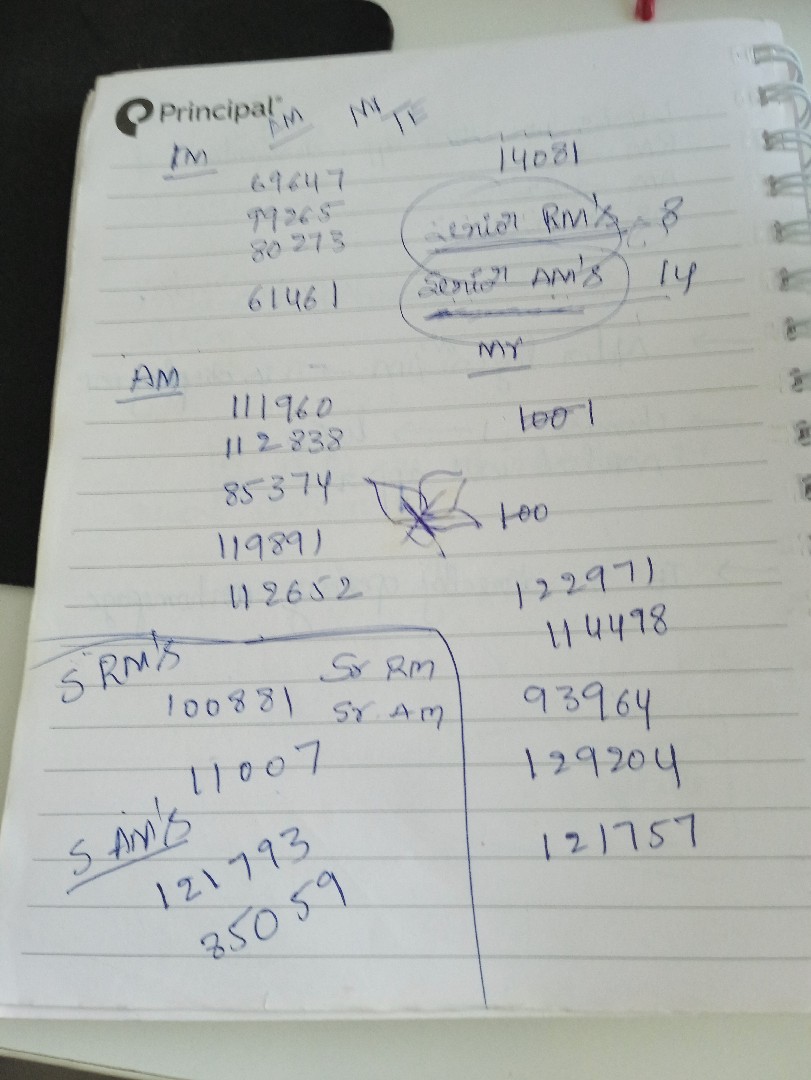 Principal
AM
14081
69647
99265
80273
61461
senior RM's 8
senior AM's 14
Mr
AM
111960
112838
85374
119891
112652
1001
100
122971
114498
93964
129204
121757
S RM's
100881
Sr RM
Sr. AM
11007
S AM's
121793
85059